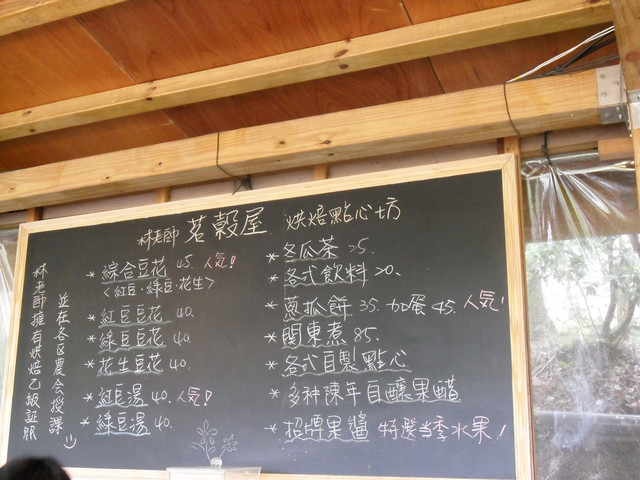 林老師 茗穀屋 烘焙點心坊
林老師擁有烘焙乙級証照
並在各区農会授課
* 綜合豆花 45. 人気!
<紅豆·綠豆·花生>
* 紅豆豆花 40.
* 綠豆豆花 40.
* 花生豆花 40.
* 紅豆湯 40. 人気!
* 綠豆湯 40.
* 冬瓜茶 25.
* 各式飲料 20.
* 蔥抓餅 35. 加蛋 45. 人気!
* 關東煮 85.
* 各式自製點心
* 多种陳年自釀果醋
* 招牌果醬 特選当季水果!